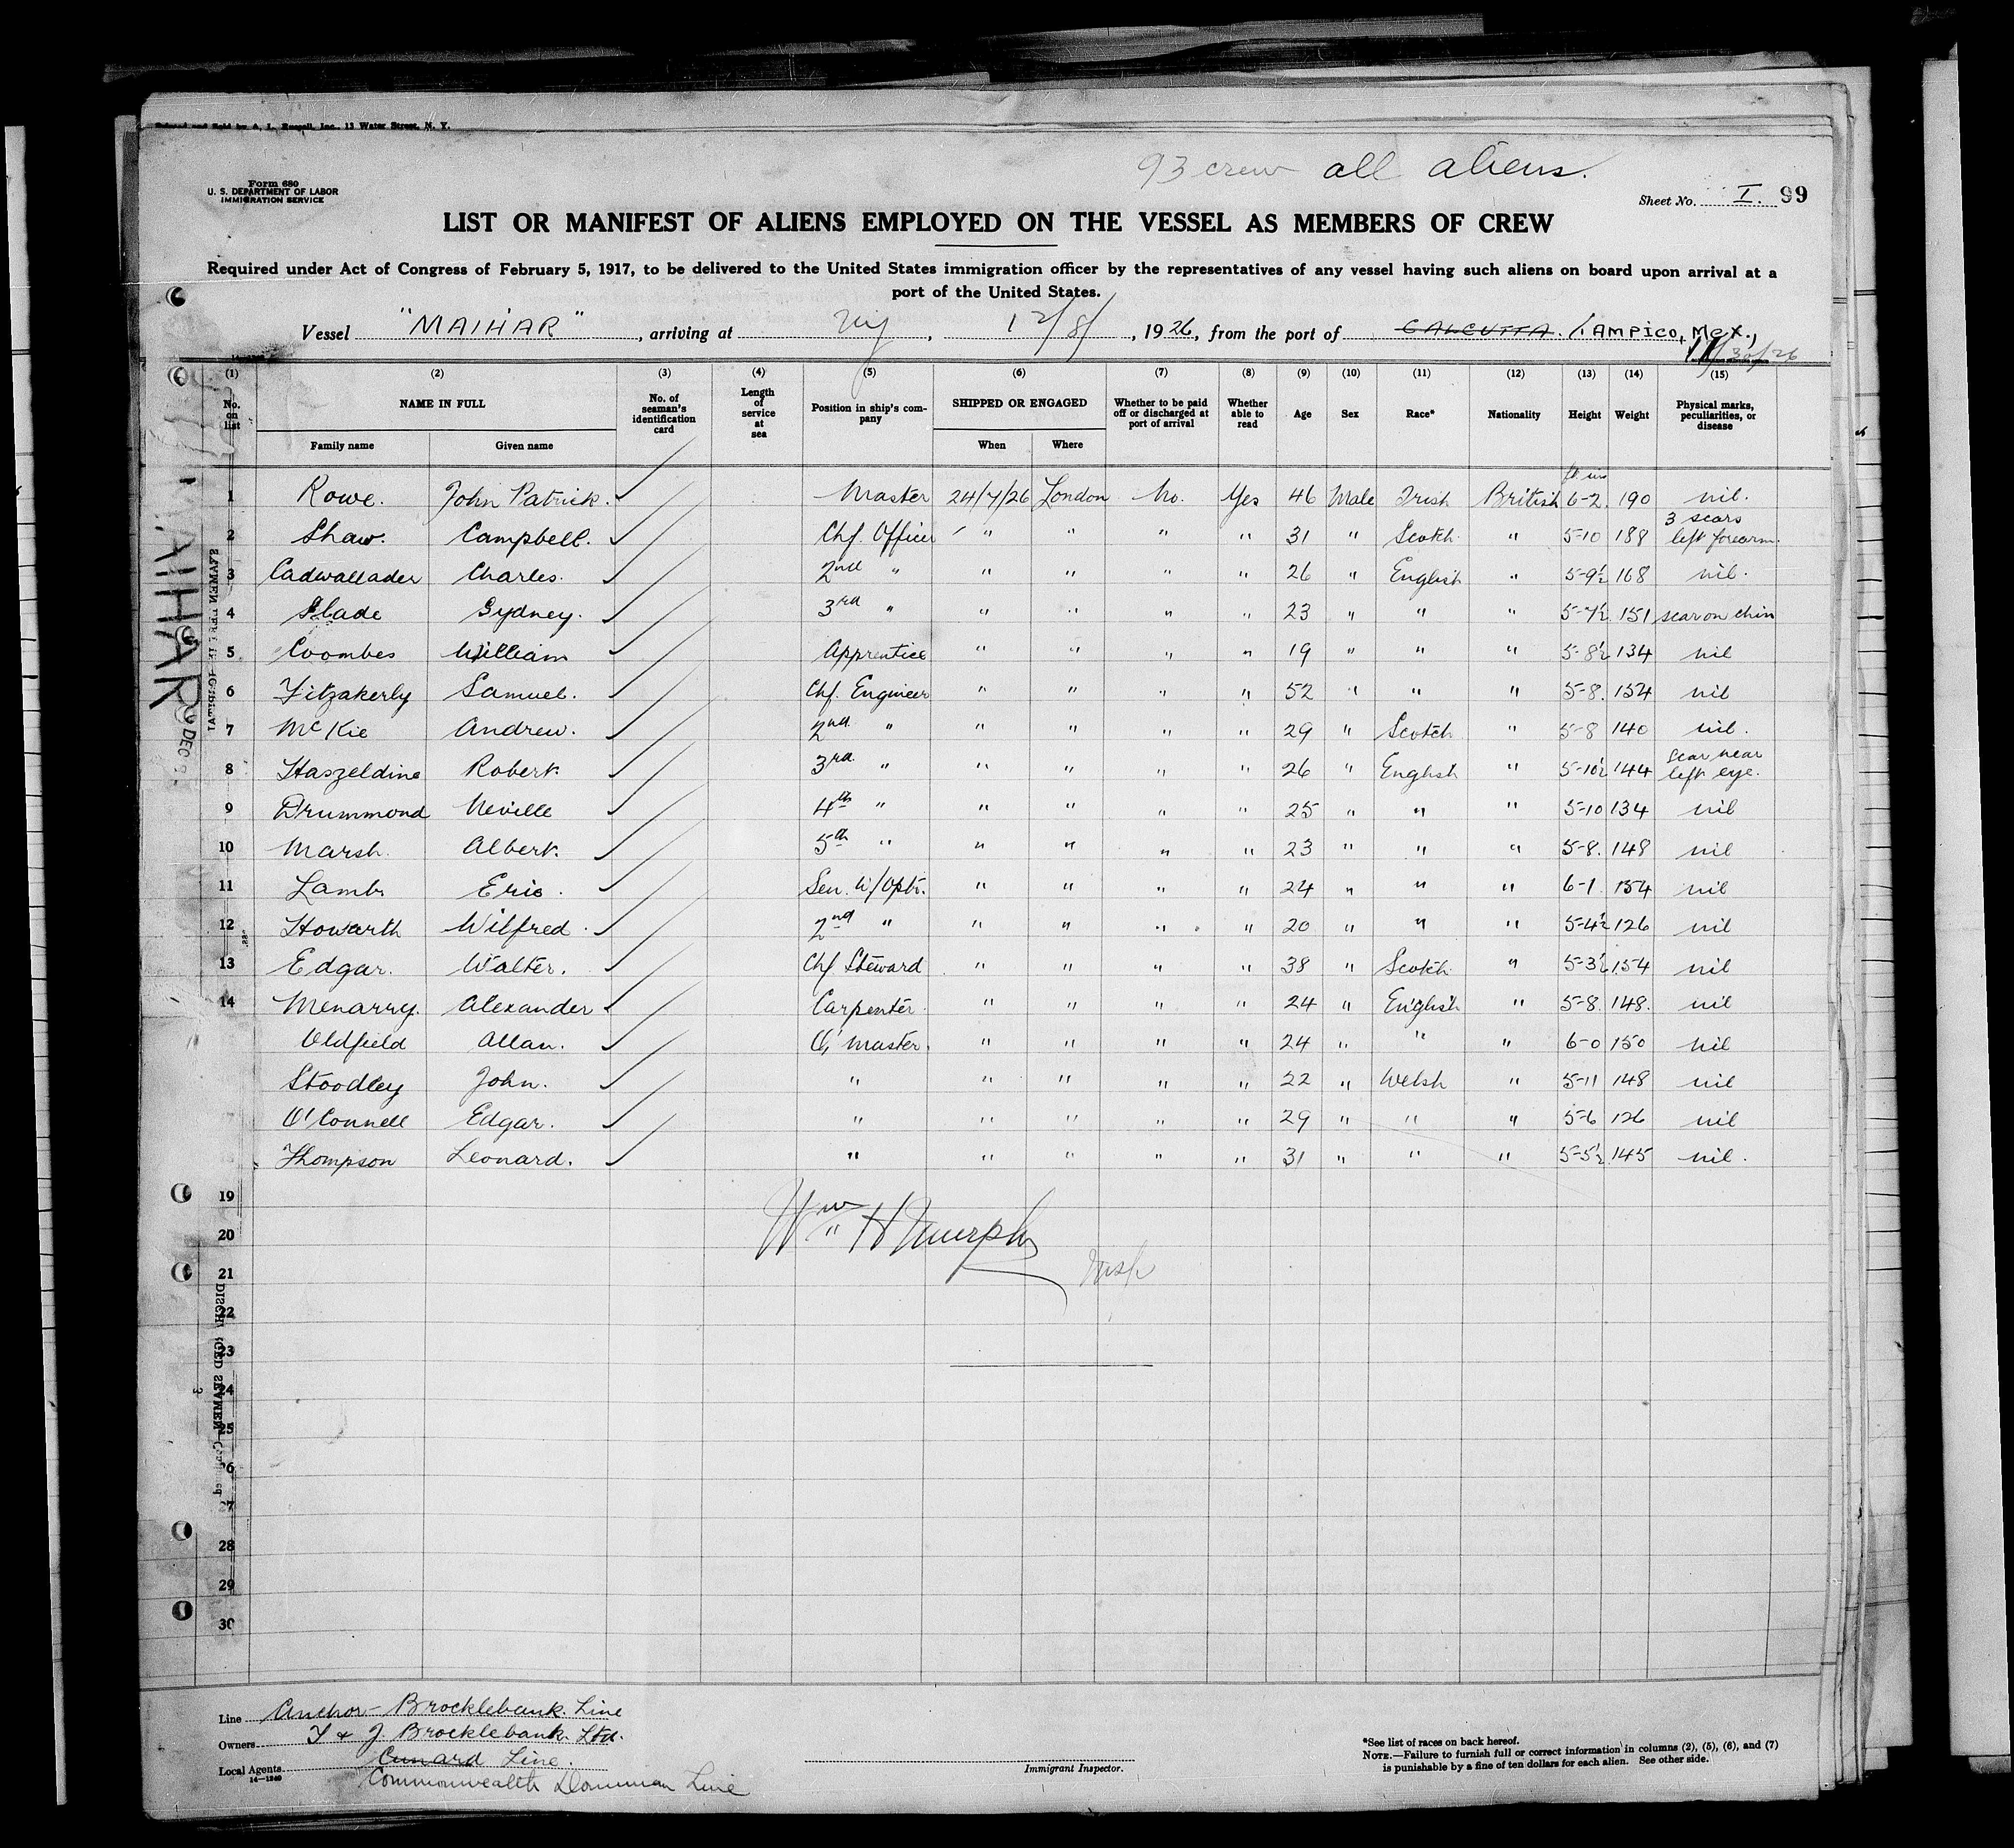 93 crew all aliens.
Form 680
U. S. DEPARTMENT OF LABOR
IMMIGRATION SERVICE
Sheet No. I. 99
LIST OR MANIFEST OF ALIENS EMPLOYED ON THE VESSEL AS MEMBERS OF CREW
Required under Act of Congress of February 5, 1917, to be delivered to the United States immigration officer by the representatives of any vessel having such aliens on board upon arrival at a
port of the United States.
Vessel "MAIHAR", arriving at NY, 12/8/, 1926, from the port of CALCUTTA. TAMPICO, MEX.,
11/30/26
(1) (2) (3) (4) (5) (6) (7) (8) (9) (10) (11) (12) (13) (14) (15)
No. on list NAME IN FULL No. of seaman's identification card Length of service at sea Position in ship's company SHIPPED OR ENGAGED Whether to be paid off or discharged at port of arrival Whether able to read Age Sex Race* Nationality Height Weight Physical marks, peculiarities, or disease
Family name Given name When Where
ft ins
1 Rowe. John Patrick. Master 24/7/26 London No. Yes 46 Male Irish British 6-2. 190 nil.
2 Shaw. Campbell. Chf. Officer " " " " 31 " Scotch " 5-10 188 3 scars left forearm.
3 Cadwallader Charles. 2nd " " " " " 26 " English " 5-9½ 168 nil.
4 Slade Sydney. 3rd " " " " " 23 " " " 5-7½ 151 scar on chin
5 Coombes William Apprentice " " " " 19 " " " 5-8½ 134 nil
6 Fitzakerly Samuel. Chf. Engineer " " " " 52 " " " 5-8. 154 nil
7 McKie Andrew. 2nd " " " " " 29 " Scotch " 5-8 140 nil.
8 Haszeldine Robert. 3rd " " " " " 26 " English " 5-10½ 144 scar near left eye.
9 Drummond Neville 4th " " " " " 25 " " " 5-10 134 nil
10 Marsh. Albert. 5th " " " " " 23 " " " 5-8. 148 nil
11 Lamb. Eric. Sen. W/Optr. " " " " 24 " " " 6-1. 154 nil
12 Howarth Wilfred. 2nd " " " " " 20 " " " 5-4½ 126 nil
13 Edgar. Walter. Chf Steward " " " " 38 " Scotch " 5-3½ 154 nil
14 Menarry. Alexander Carpenter. " " " " 24 " English " 5-8. 148. nil
Oldfield Allan. Q. Master. " " " " 24 " " " 6-0 150 nil
Stoodley John. " " " " " 22 " Welsh " 5-11 148 nil
O'Connell Edgar. " " " " " 29 " " " 5-6 126 nil
Thompson Leonard. " " " " " 31 " " " 5-5½ 145 nil.
19
20 Wm H Murphy
21 Insp
22
23
24
25
26
27
28
29
30
MAIHAR
DEC
Line Anchor-Brocklebank. Line
Owners T & J. Brocklebank. Ltd.
Local Agents Cunard Line.
14—1240
Commonwealth Dominion Line
Immigrant Inspector.
*See list of races on back hereof.
NOTE.—Failure to furnish full or correct information in columns (2), (5), (6), and (7)
is punishable by a fine of ten dollars for each alien. See other side.